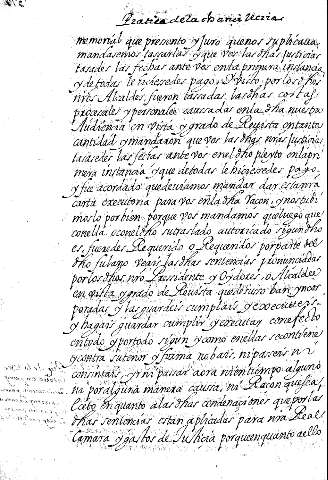 Pratica de la chan.ª
memorial que presento y Juro que nos suplicava
mandasemos tassarlas y que vos las dhas Justicias
tasades las fechas ante vos en la primera instancia
y de todas le hiciesedes pago, y visto por los dhos
nros Alcaldes, fueron tassadas las dhas costas
procesales y personales causadas en la dha nuestra
Audiencia en vista y grado de Revista en tantos
cantidad y mandaron que vos las dhas nras Justicias
tasasedes las fechas ante vos en el dho pleyto en la pri
mera instancia y que de todas le hiciesedes pago
y fue acordado que deviamos mandar dar esta nra
carta executoria para vos en la dha racon, y nos tubi
moslo por bien porque vos mandamos que luego que
con ella, o con el dho su traslado autoricado segun dho
es, fueredes Requerido o Requeridos por parte del
dho fulano veais las dhas sentencias pronunciadas
por los dhos nro Presidente y Oydores, o Alcaldes
en vista y grado de Revista que de suso ban yncor
poradas y las guardeis cumplais y executeis
y hagais guardar cumplir y executar con efecto
en todo y por todo segun y como en ellas se contiene
y contra su tenor y forma no bais, ni paseis ni
consintais, yr ni passar aora ni en tiempo alguno
ni por alguna manera causa, ni Racon que sea
excepto en quanto a las dhas condenaciones que por las
dhas sentencias estan aplicadas para nra Real
Camara y gastos de Justicia porque en quanto a ello